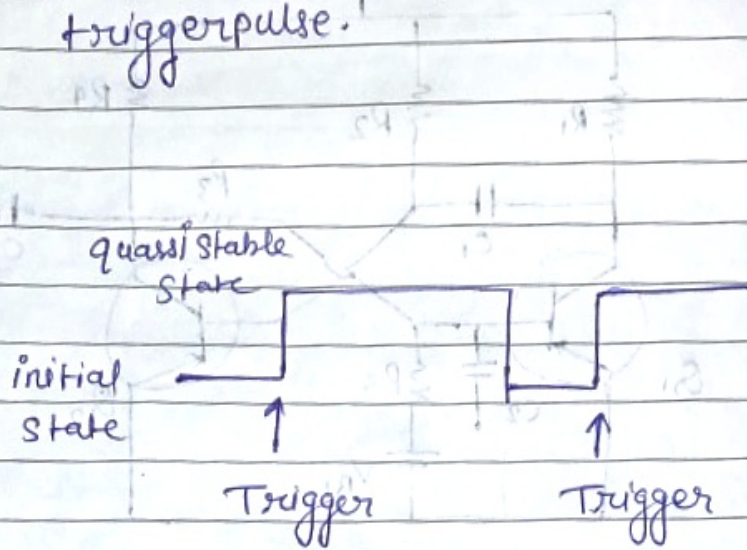 triggerpulse.
quassi stable
state
initial
state
Trigger Trigger